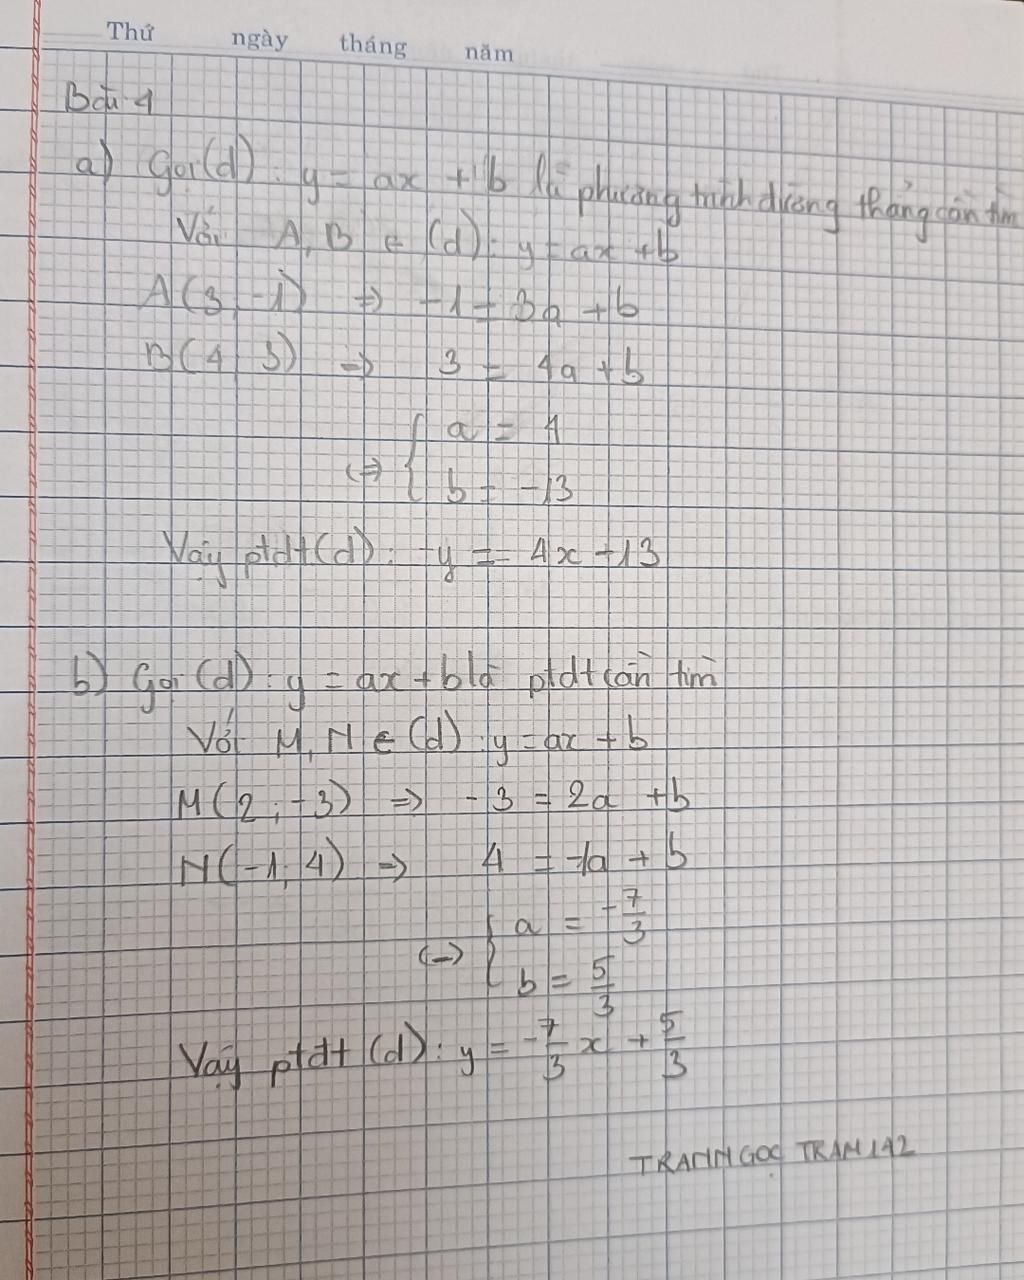 Thứ ngày tháng năm
Bài 1
a) Gọi (d): y = ax + b là phương trình đường thẳng cần tìm
Với A, B ∈ (d): y = ax + b
A(3, -1) => -1 = 3a + b
B(4, 3) => 3 = 4a + b
<=> { a = 4
b = -13
Vậy ptdt (d): y = 4x - 13
b) Gọi (d): y = ax + b là ptdt cần tìm
Với M, N ∈ (d): y = ax + b
M(2; -3) => -3 = 2a + b
N(-1; 4) => 4 = -1a + b
<=> { a = -7/3
b = 5/3
Vậy ptdt (d): y = -7/3 x + 5/3